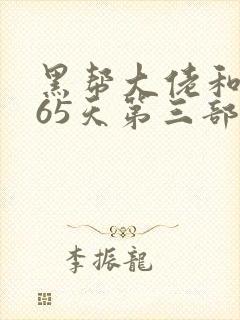 黑帮大佬和
65天第三部
李振龍